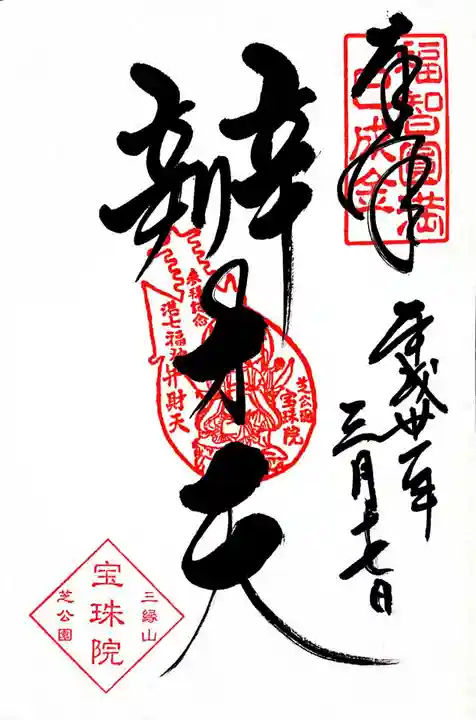 奉拝
福智圓満
己成金
平成卅一年
三月十七日
辨才天
参拝記念
港七福神
弁財天
芝公園
宝珠院
三縁山
宝珠院
芝公園